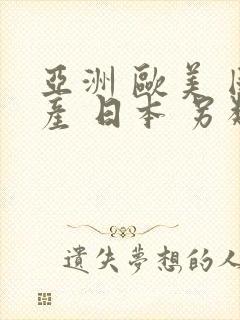 亞洲 歐美
產 日本 另
遺失夢想的人